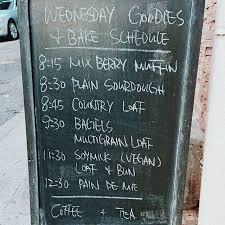 WEDNESDAY GOODIES
& BAKE SCHEDULE
8:15 MIX BERRY MUFFIN
8:30 PLAIN SOURDOUGH
8:45 COUNTRY LOAF
9:30 BAGELS
MULTIGRAIN LOAF
11:30 SOYMILK (VEGAN)
LOAF & BUN
12:30 PAIN DE MIE
COFFEE + TEA